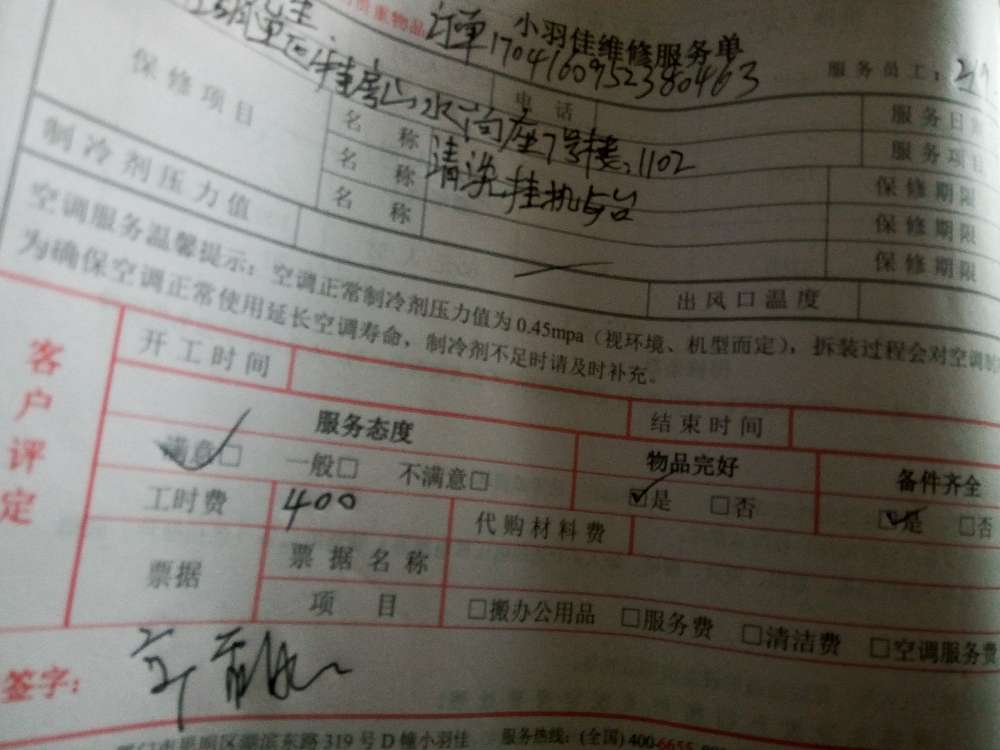 重物品
小羽佳维修服务单
订单17041609523380463
服务员工:
桂房山水尚座7号楼,1102
电话
服务日
保修项目
名称 清洗挂机5台
服务项目
名称
保修期限
名称
保修期限
保修期限
制冷剂压力值
出风口温度
空调服务温馨提示:空调正常制冷剂压力值为0.45mpa(视环境、机型而定),拆装过程会对空调制
为确保空调正常使用延长空调寿命,制冷剂不足时请及时补充。
客户评定
开工时间
结束时间
服务态度
物品完好
备件齐全
满意□ 一般□ 不满意□
☑是 □否
☑是 □否
工时费 400
代购材料费
票据
票据名称
项目
□搬办公用品 □服务费 □清洁费 □空调服务费
签字:
湖滨东路319号D幢小羽佳
服务热线:(全国)400-6655